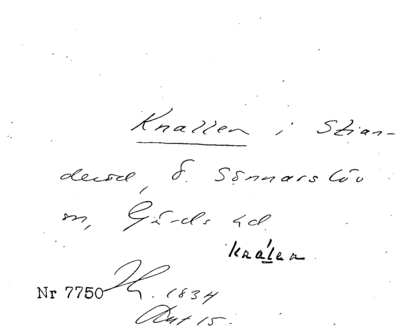 Knallen i Stian-
deröd, Ö. Sönnarslöv
sn, Gärds hd
knálen
Nr 7750 1834
Akt 15.